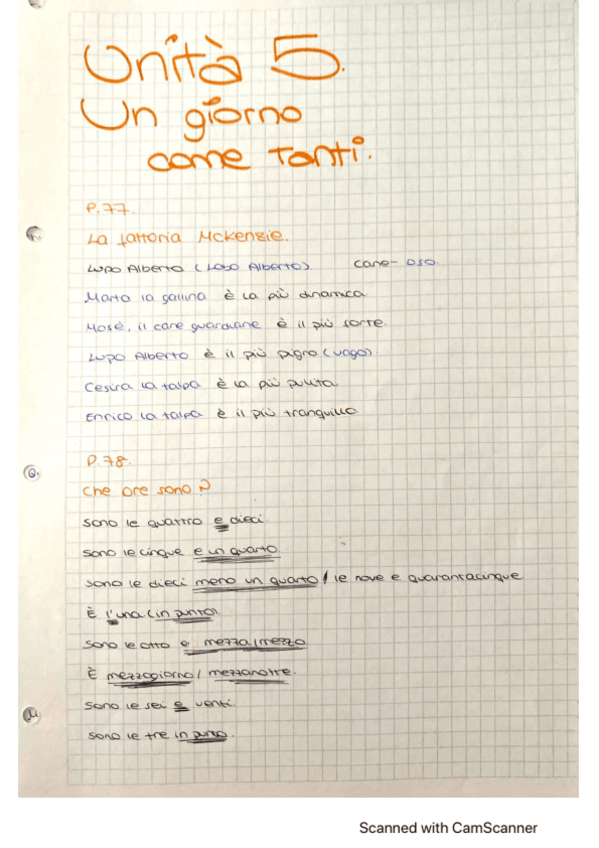 Unità 5.
Un giorno
come tanti.
P.77.
La fattoria McKenzie.
Lupo Alberto (Lobo Alberto) cane- oso.
Marta la gallina è la più dinamica
Mosè, il cane guardiane è il più forte.
Lupo Alberto è il più pigro (vago).
Cesira la talpa è la più pulita
Enrico la talpa è il più tranquillo
P.78.
Che ore sono?
Sono le quattro e dieci.
Sono le cinque e un quarto
Sono le dieci meno un quarto / le nove e quarantacinque
È l'una (in punto).
Sono le otto e mezza/mezzo
È mezzogiorno/ mezzanotte.
Sono le sei e venti.
Sono le tre in punto.
Scanned with CamScanner